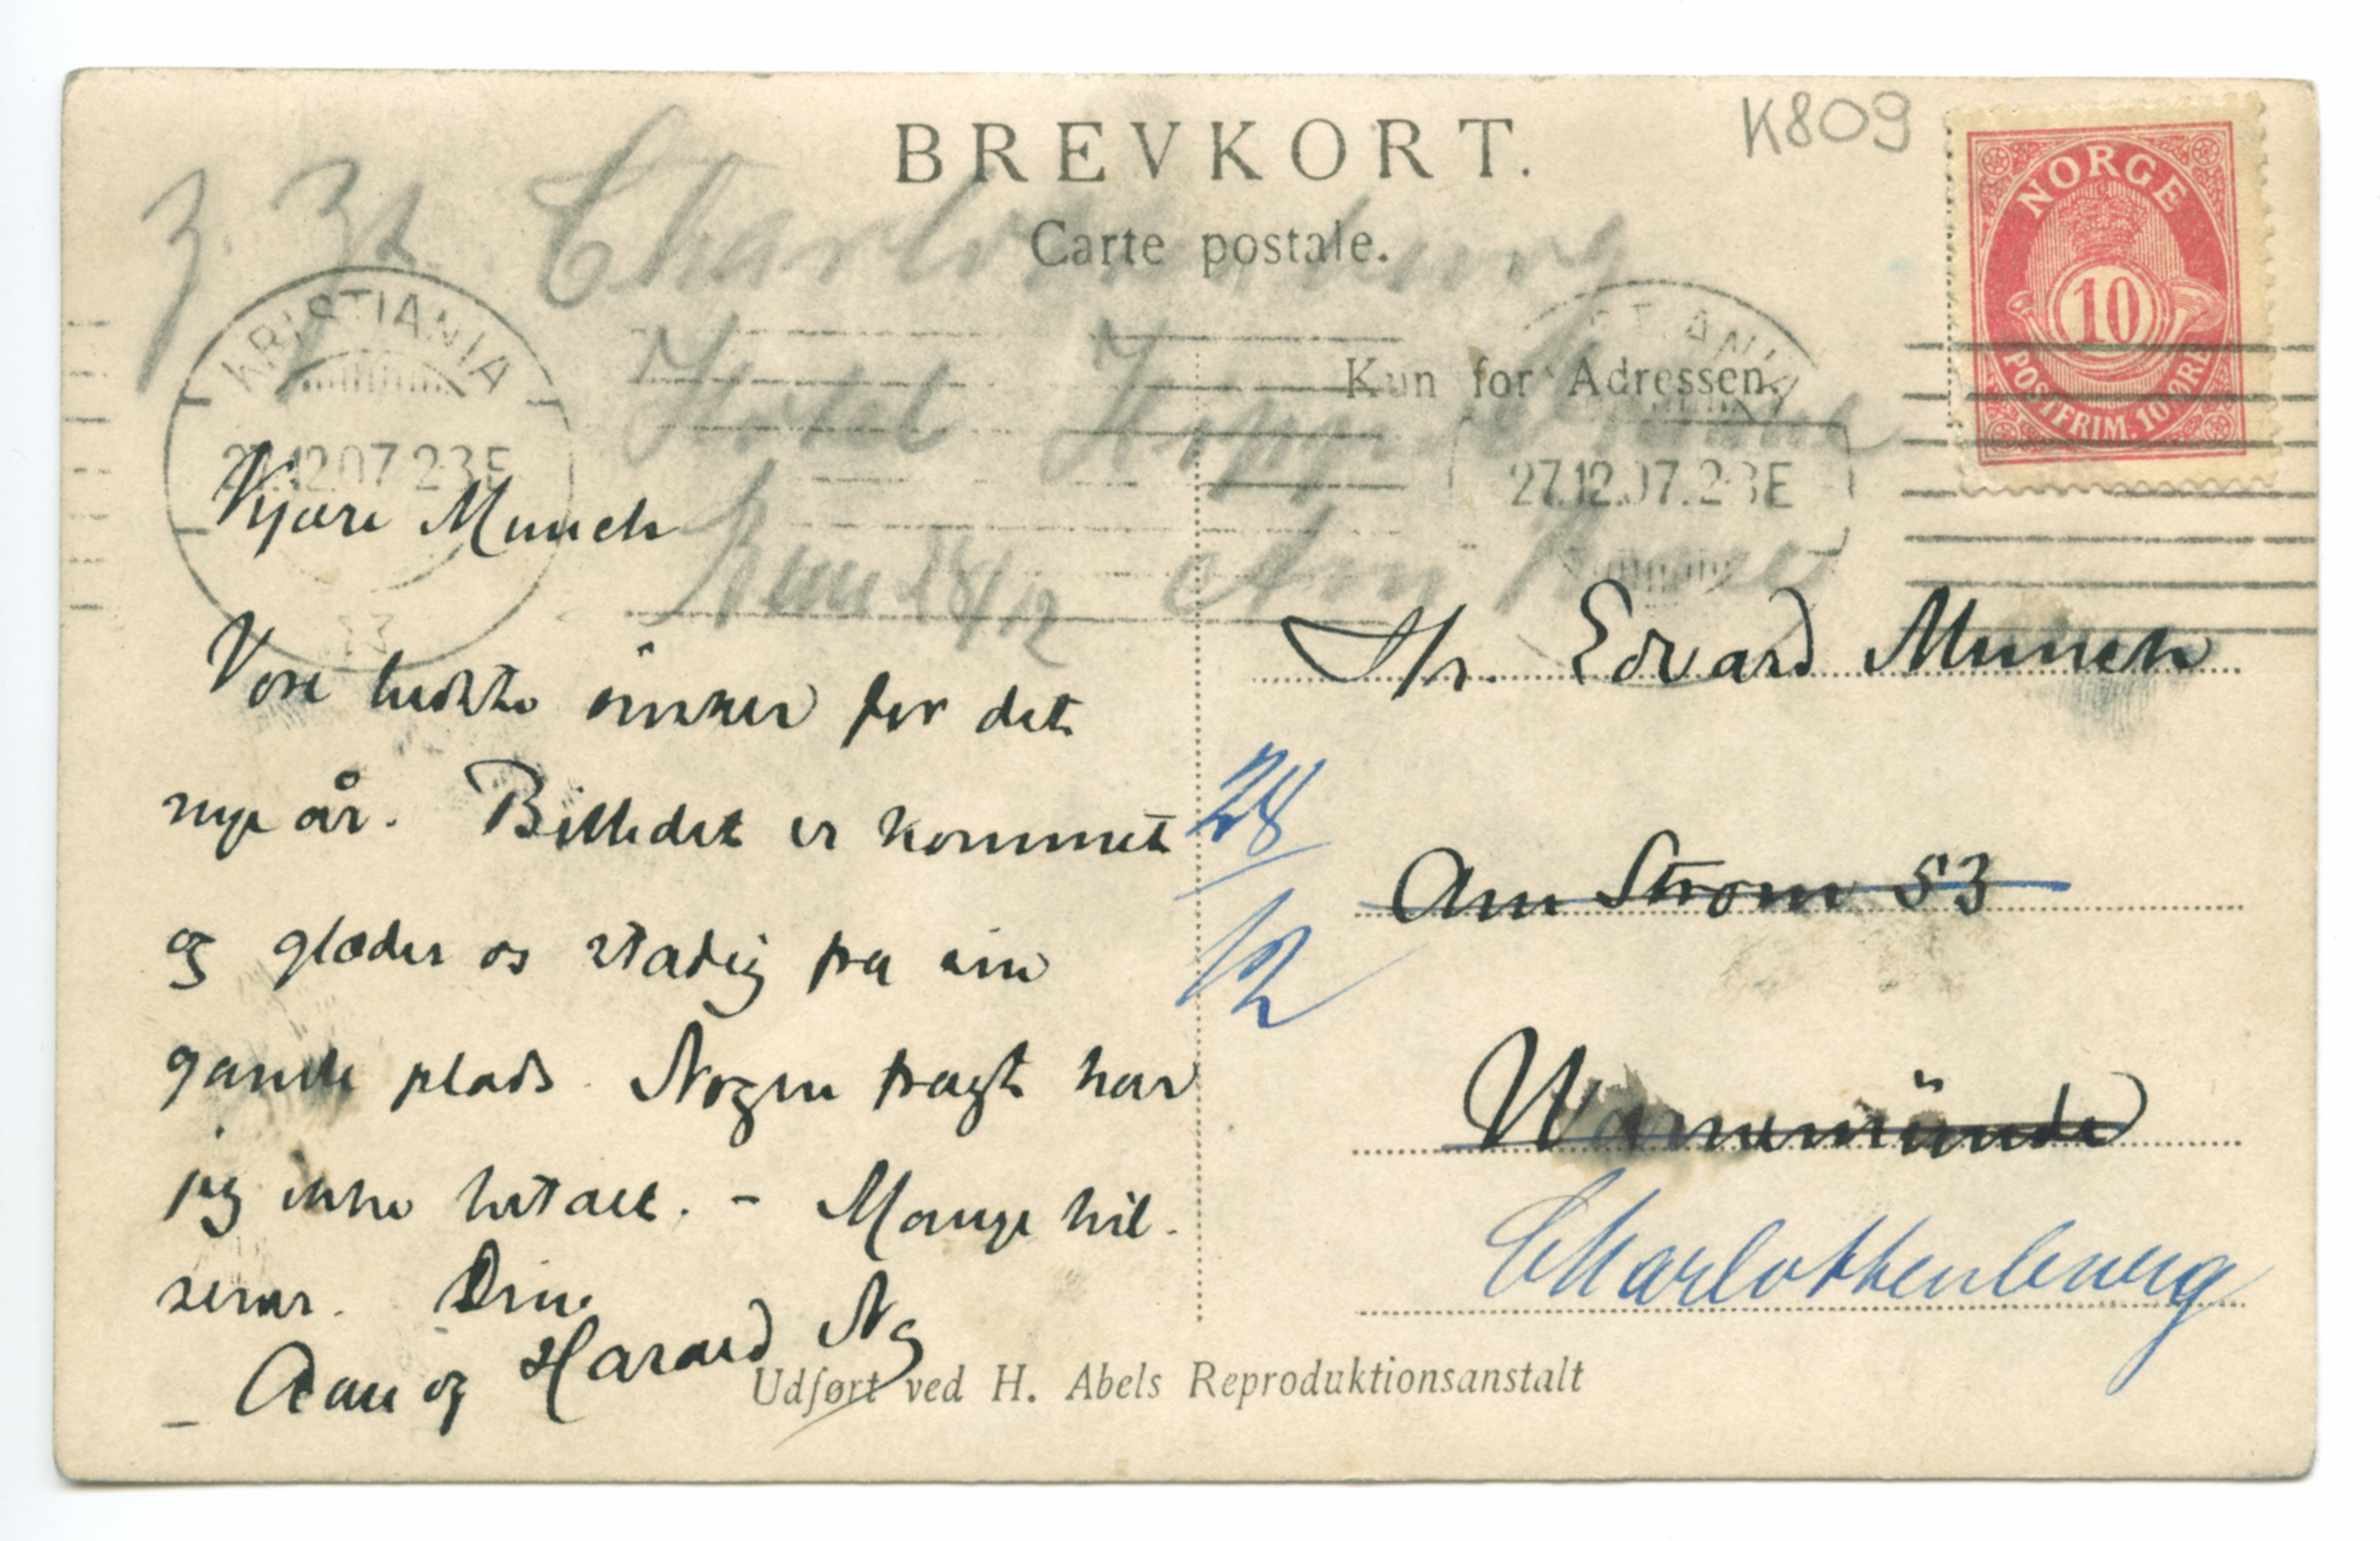 K809
BREVKORT.
Carte postale.
z. Zt. Charlottenburg
NORGE
10
POSTFRIM. 10 ØRE
KRISTIANIA
27.12.07.2-3E
Kun for Adressen.
27.12.07.2-3E
Hotel
28/12 Am
13
Kjære Munch
Vore bedste önsker for det
nye år. Billedet er kommet
og glæder os stadig fra sin
gamle plads. Nogen fragt har
jeg ikke betalt. – Mange hil-
sener. Din
Aase og Harald Ng
Hr. Edvard Munch
28/12
Am Strom 53
Warnemünde
Charlottenburg
Udført ved H. Abels Reproduktionsanstalt